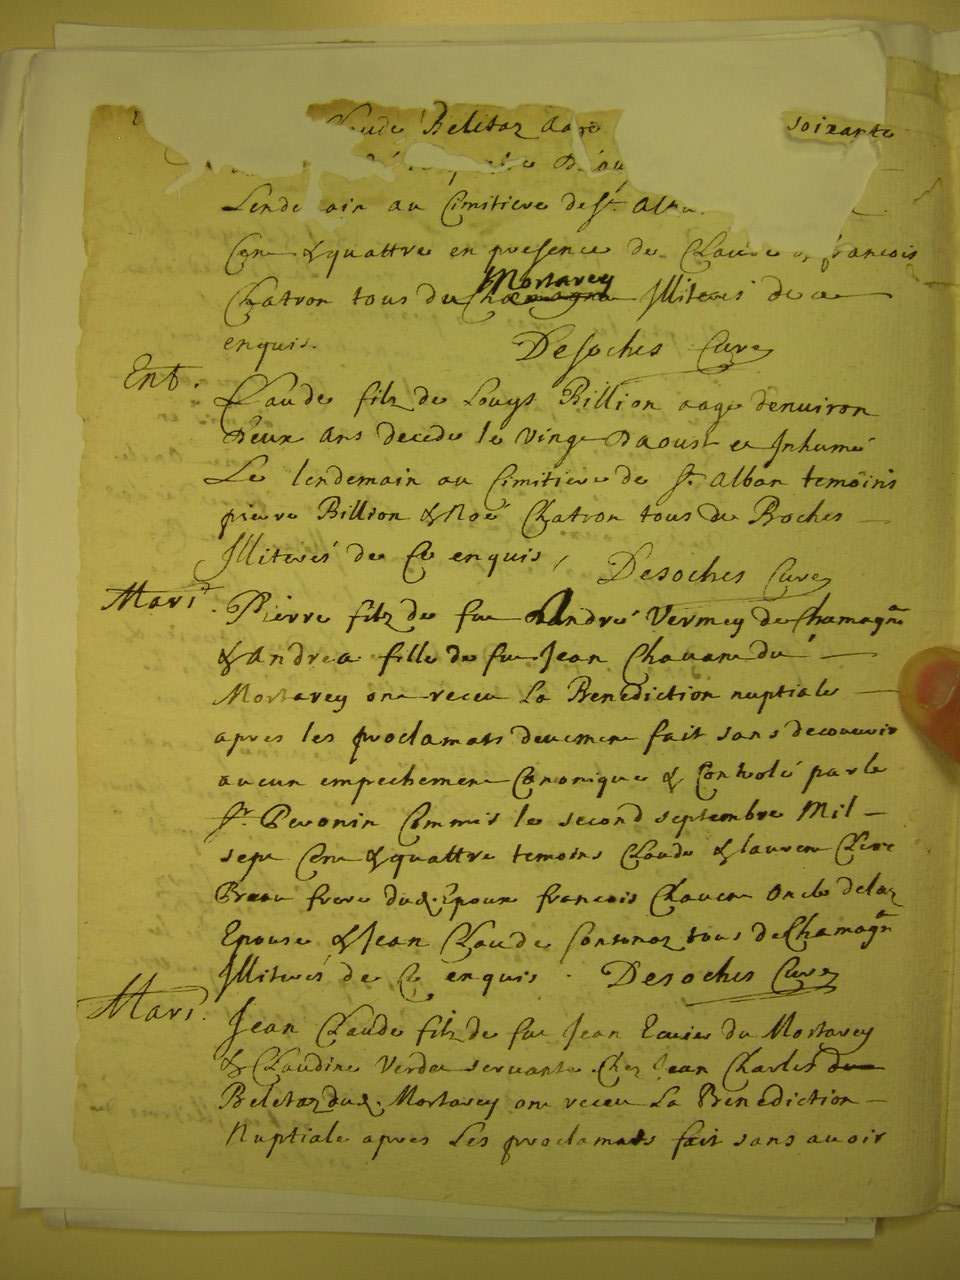 Claude Beletaz aagé soixante
Lende ain au Cimitiere de St. Alba
Cen & quattre en presence de Claude & francois
Chatron tous du Mortarey Illiterés de ce
enquis. Desoches Curé
Ent. Claude filz de Louys Billion aagé denuiron
deux ans decede le vingt daoust et Inhumé
Le lendemain au Cimitiere de St. Alban temoins
pierre Billion & Noé Chatron tous de Boches
Illiterés de Ce enquis, Desoches Curé
Mari. Pierre filz de feu André Vermey de Chamagne
& Andrea fille de feu Jean Chauane du
Mortarey ont receu La Benediction nuptiale
apres les proclamats deuement fait sans decouurir
aucun empechement Canonique & Controlé par le
Sr. Peronin Commis le second septembre Mil
sept Cent & quattre temoins Claude & laurent
frere dud. Epoux francois Chauane Oncle delaz
Epouse & Jean Claude tous de Chamagne
Illiterés de Ce enquis. Desoches Curé
Mari. Jean Claude filz de feu Jean du Mortarey
& Claudine Verdet servante Chez Jean Charles du
Beletaz dud. Mortarey ont receu La Benediction
Nuptiale apres Les proclamats fait sans auoir